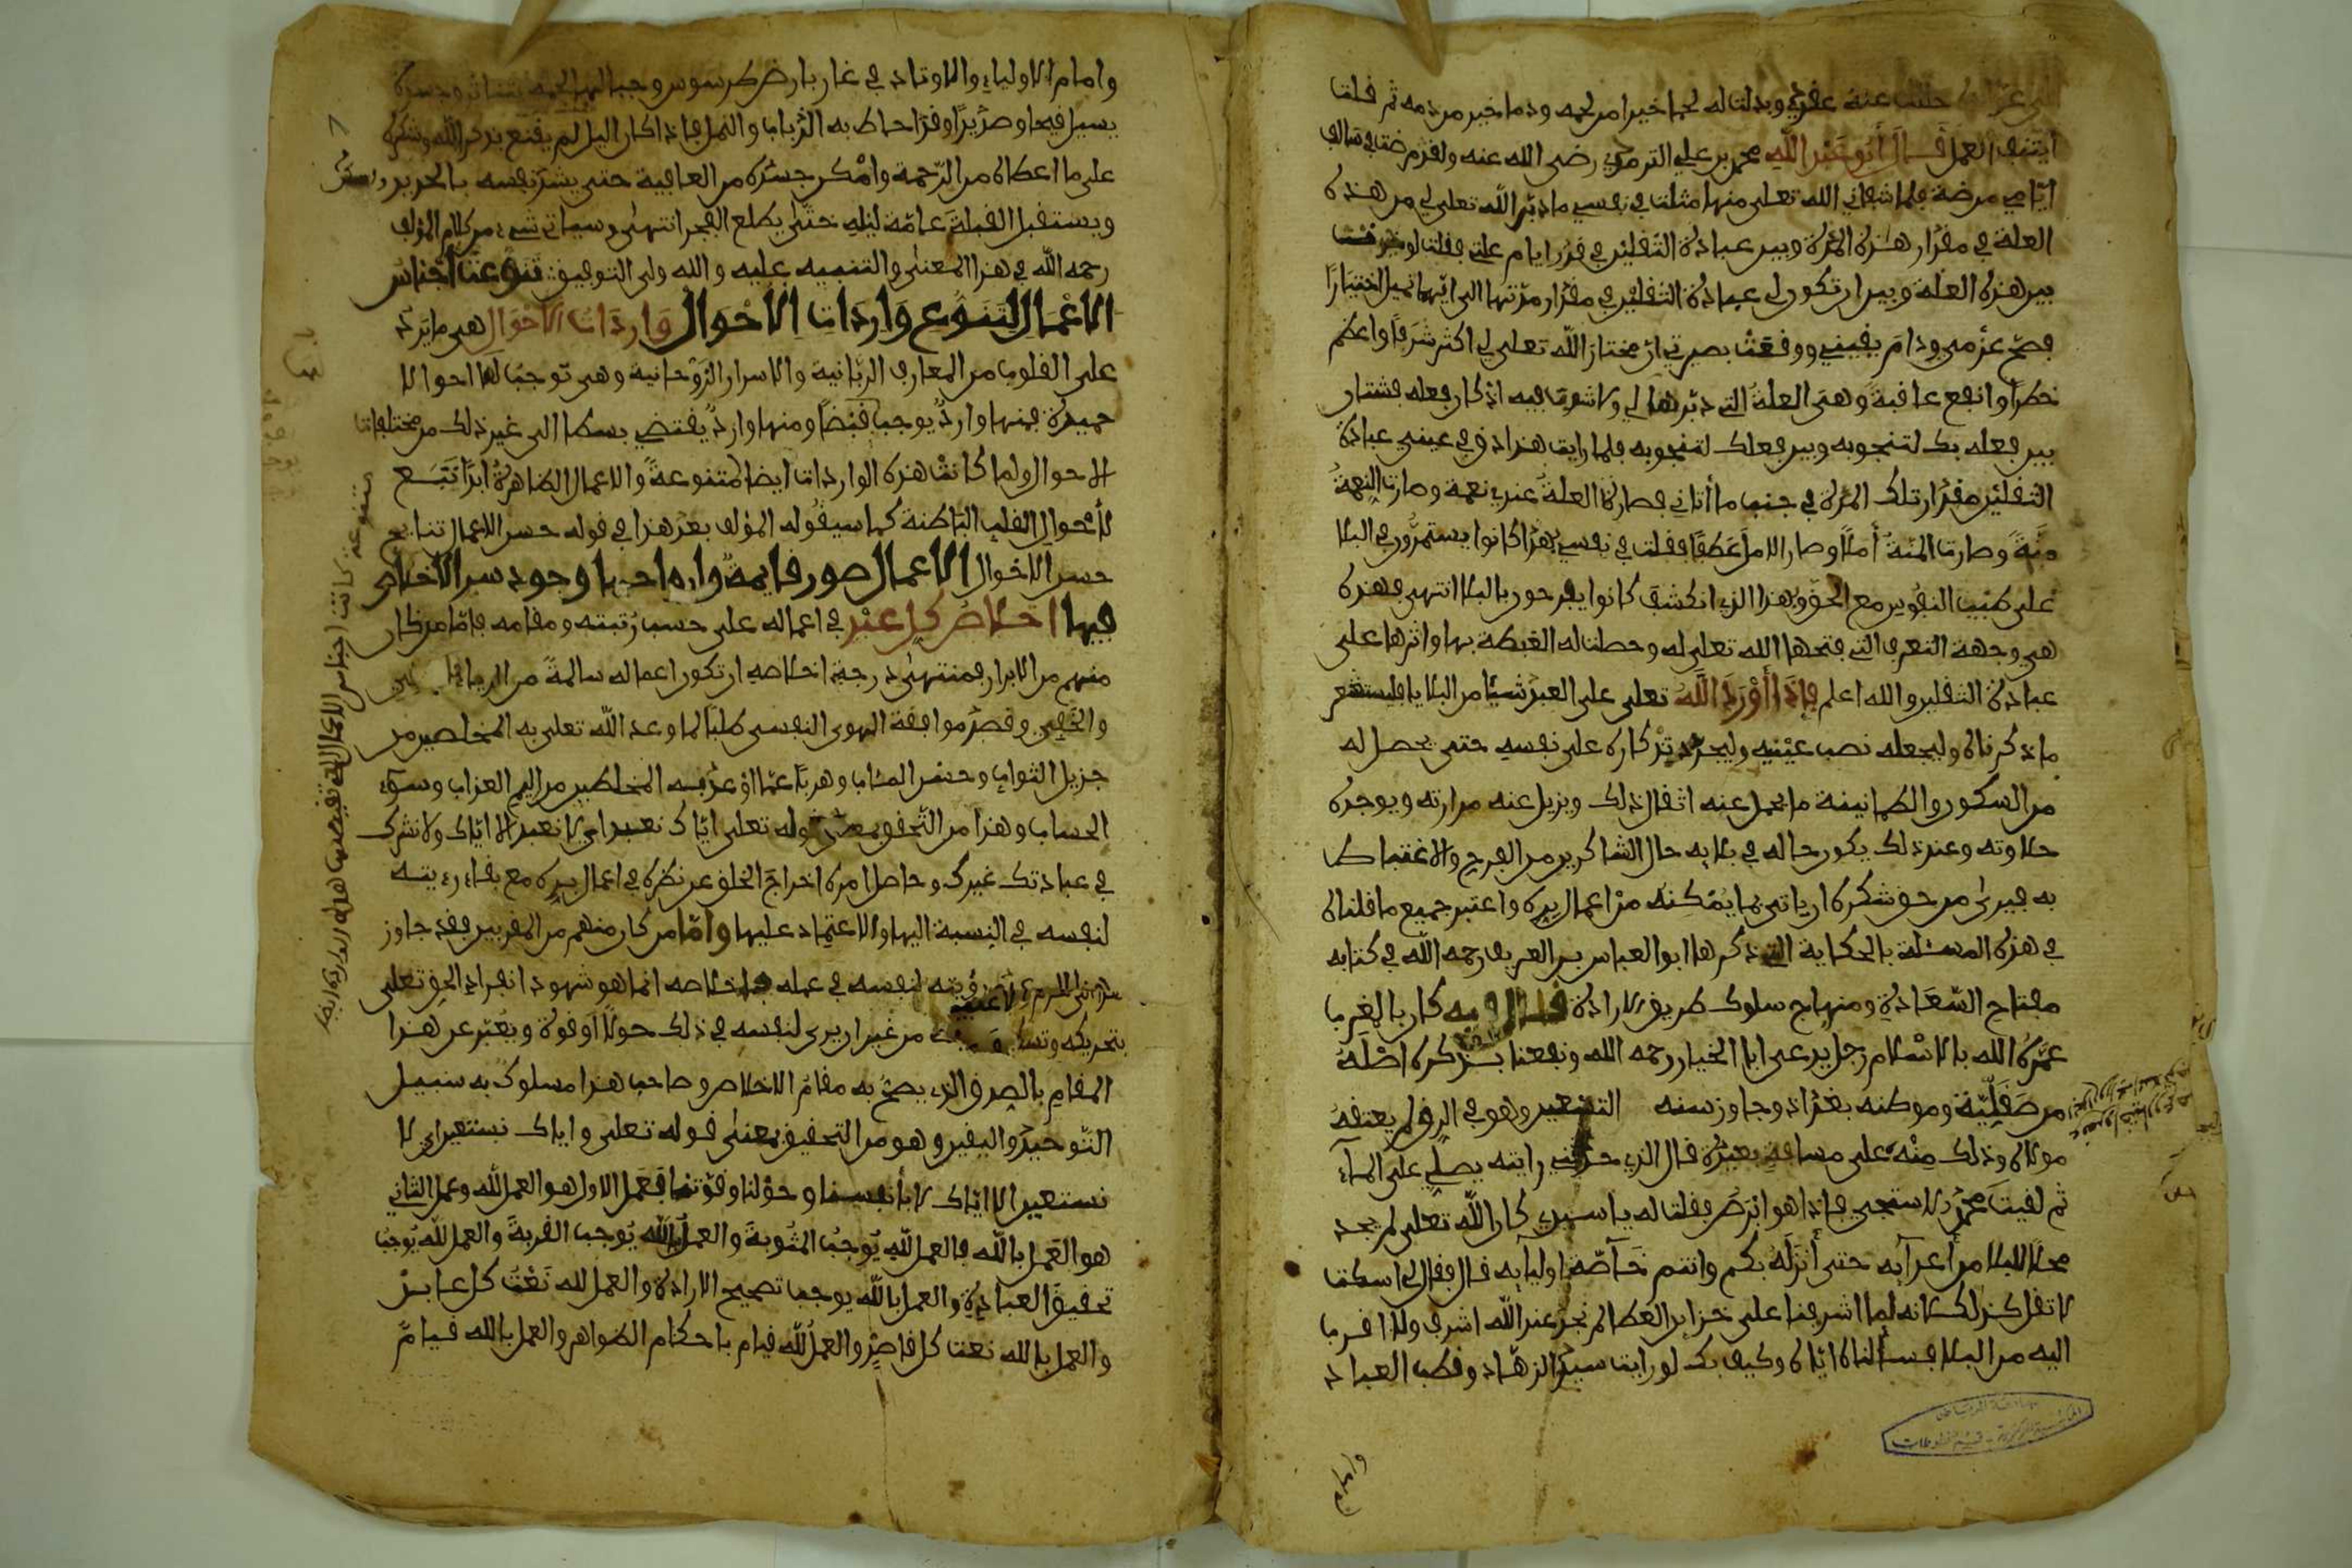 حللت عنه عقدي وبدلت له لحما خيرا من لحمه ودما خير من دمه ثم قلت
ايتنف العمل قــال أبو عبد الله محمد بن علي الترمذي رضي الله عنه ولقد مرضت في سالف
ايامي مرضة فلما شفاني الله تعلى منها مثلت في نفسي ما دبر الله تعلى لي من هذه
العلة في مقدار هذه المدة وبين عبادة الثقلين في قدر ايام علتي فقلت لو خيرت
بين هذه العلة وبين ان تكون لي عبادة الثقلين في مقدار مدتها الى ايهما تميل اختيارا
فصح عزمي ودام يقيني ووقعت بصيرتي ان مختار الله تعلى لي اكثر شرفا واعظم
خطرا وانفع عاقبة وهي العلة التي دبرها لي ولا شوب فيه اذ كان فعله فشتان
بين فعله بك لتنجو به وبين فعلك لتنجو به فلما رايت هذا دق في عيني عبادة
الثقلين مقدار تلك المدة في جنب ما أتاني فصارت العلة عندي نعمة وصارت النعمة
منة وصارت المنة أملا وصار الامل عطفا فقلت في نفسي بهذا كانوا يستمرون في البلا
على طيب النفوس مع الحق وبهذا الذي انكشف كانوا يفرحون بالبلا انتهى فهذه
هي وجهة التعرف التي فتحها الله تعلى له وحصلت له الغبطة بها واثرها على
عبادة الثقلين والله اعلم فإذا أورد الله تعلى على العبد شيئا من البلايا فليستشعر
ما ذكرناه وليجعله نصب عينيه وليجدد تذكاره على نفسه حتى يحصل له
من السكون والطمانينة ما يحمل عنه اثقال ذلك ويزيل عنه مرارته ويوجده
حلاوته وعند ذلك يكون حاله في بلايه حال الشاكرين من الفرح والاغتباط
به فيرى من حق شكره ان ياتي بما يمكنه من اعمال بره واعتبر جميع ما قلناه
في هذه المسئلة بالحكاية التي ذكرها ابو العباس بن العريف رحمه الله في كتابه
مفتاح السعادة ومنهاج سلوك طريق الارادة قــال فيه كان بالمغرب
عمره الله بالاسلام رجل يدعى ابا الخيار رحمه الله ونفعنا بــذكره اصله
من صقلية وموطنه بغداد وجاوز سنه التسعين وهو في الرق لم يعتقه
مولاه وذلك منه على مسافة بعيدة قال الذي حدثني رايته يصلي على الماء
ثم لقيت محمد الاستجي فإذا هو ابرص فقلت له يا سيدي كان الله تعلى لم يجد
محلا للبلا من أعدايه حتى أنزله بكم وانتم خاصة اوليايه قــال فقال لي اسكت
لا تقل كذلك لانه لما اشرفنا على خزاين العطا لم نجد عند الله اشرف ولا اقرب
اليه من البلا فسألناه اياه وكيف بك لو رايت سيد الزهاد وقطب العباد
وامام
وامام الاولياء والاوتاد في غار بارض طرسوس وجبالها لحمه يتناثر وجسده
يسيل قيحا وصديدا وقد احاط به الذباب والنمل فإذا كان الليل لم يقنع بذكر الله وشكره
على ما اعطاه من الرحمة وامكن جسده من العافية حتى يشد نفسه بالحديد
ويستقبل القبلة عامة ليله حتى يطلع الفجر انتهى وسياتي شيء من كلام المؤلف
رحمه الله في هذا المعنى والتنبيه عليه والله ولي التوفيق تنوعت أجناس
الاعمال لتنوع واردات الاحوال واردات الاحوال هي ما يرد
على القلوب من المعارف الربانية والاسرار الروحانية وهي توجب لها احوالا
حميدة فمنها وارد يوجب قبضا ومنها وارد يقتضي بسطا الى غير ذلك من مختلفات
الاحوال ولما كانت هذه الواردات ايضا متنوعة والاعمال الظاهرة ابدا تتبــع
لأحوال القلب الباطنة كما سيقوله المؤلف بعد هذا في قوله حسن الاعمال نتايج
حسن الاحوال الاعمال صور قايمة وارواحها وجود سر الاخلاص
فيها اخــلاص كل عبد في اعماله على حسب رتبته ومقامه فاما من كان
منهم من الابرار فمنتهى درجة اخلاصه ان تكون اعماله سالمة من الرياء
والخفي وقصد موافقة الهوى النفسي طلبا لما وعد الله تعلى به المخلصين من
جزيل الثواب وحسن المئاب وهربا عما اوعد به المخلطين من اليم العذاب وسوء
الحساب وهذا من التحقق بمعنى قوله تعلى اياك نعبد اي لا نعبد الا اياك ولا نشرك
في عبادتك غيرك وحاصل امره اخراج الخلق عن نظره في اعمال بره مع بقاء رءيتــه
لنفسه في النسبة اليها والاعتماد عليها وأما من كان منهم من المقربين فقد جاوز
هذا الى عدم رؤيته لنفسه في عمله فإخلاصه انما هو شهود انفراد الحق تعلى
بتحريكه وتسكينه من غير ان يرى لنفسه في ذلك حولا او قوة ويعبر عن هذا
المقام بالصدق الذي يصح به مقام الاخلاص وصاحب هذا مسلوك به سبيل
التوحيد واليقين وهو من التحقيق بمعنى قوله تعلى واياك نستعين اي لا
نستعين الا اياك لا بأنفسنا وحولنا وقوتنا فعمل الاول هو العمل لله وعمل الثاني
هو العمل بالله فالعمل لله يوجب المثوبة والعمل بالله يوجب القربة والعمل لله يوجب
تحقيق العبادة والعمل بالله يوجب تصحيح الارادة والعمل لله نعت كل عابــد
والعمل بالله نعت كل قاصد والعمل لله قيام باحكام الظواهر والعمل بالله قيــام
متنوعة كانت اجناس الاعمال التي تقتضيها هذه الواردات ايضا